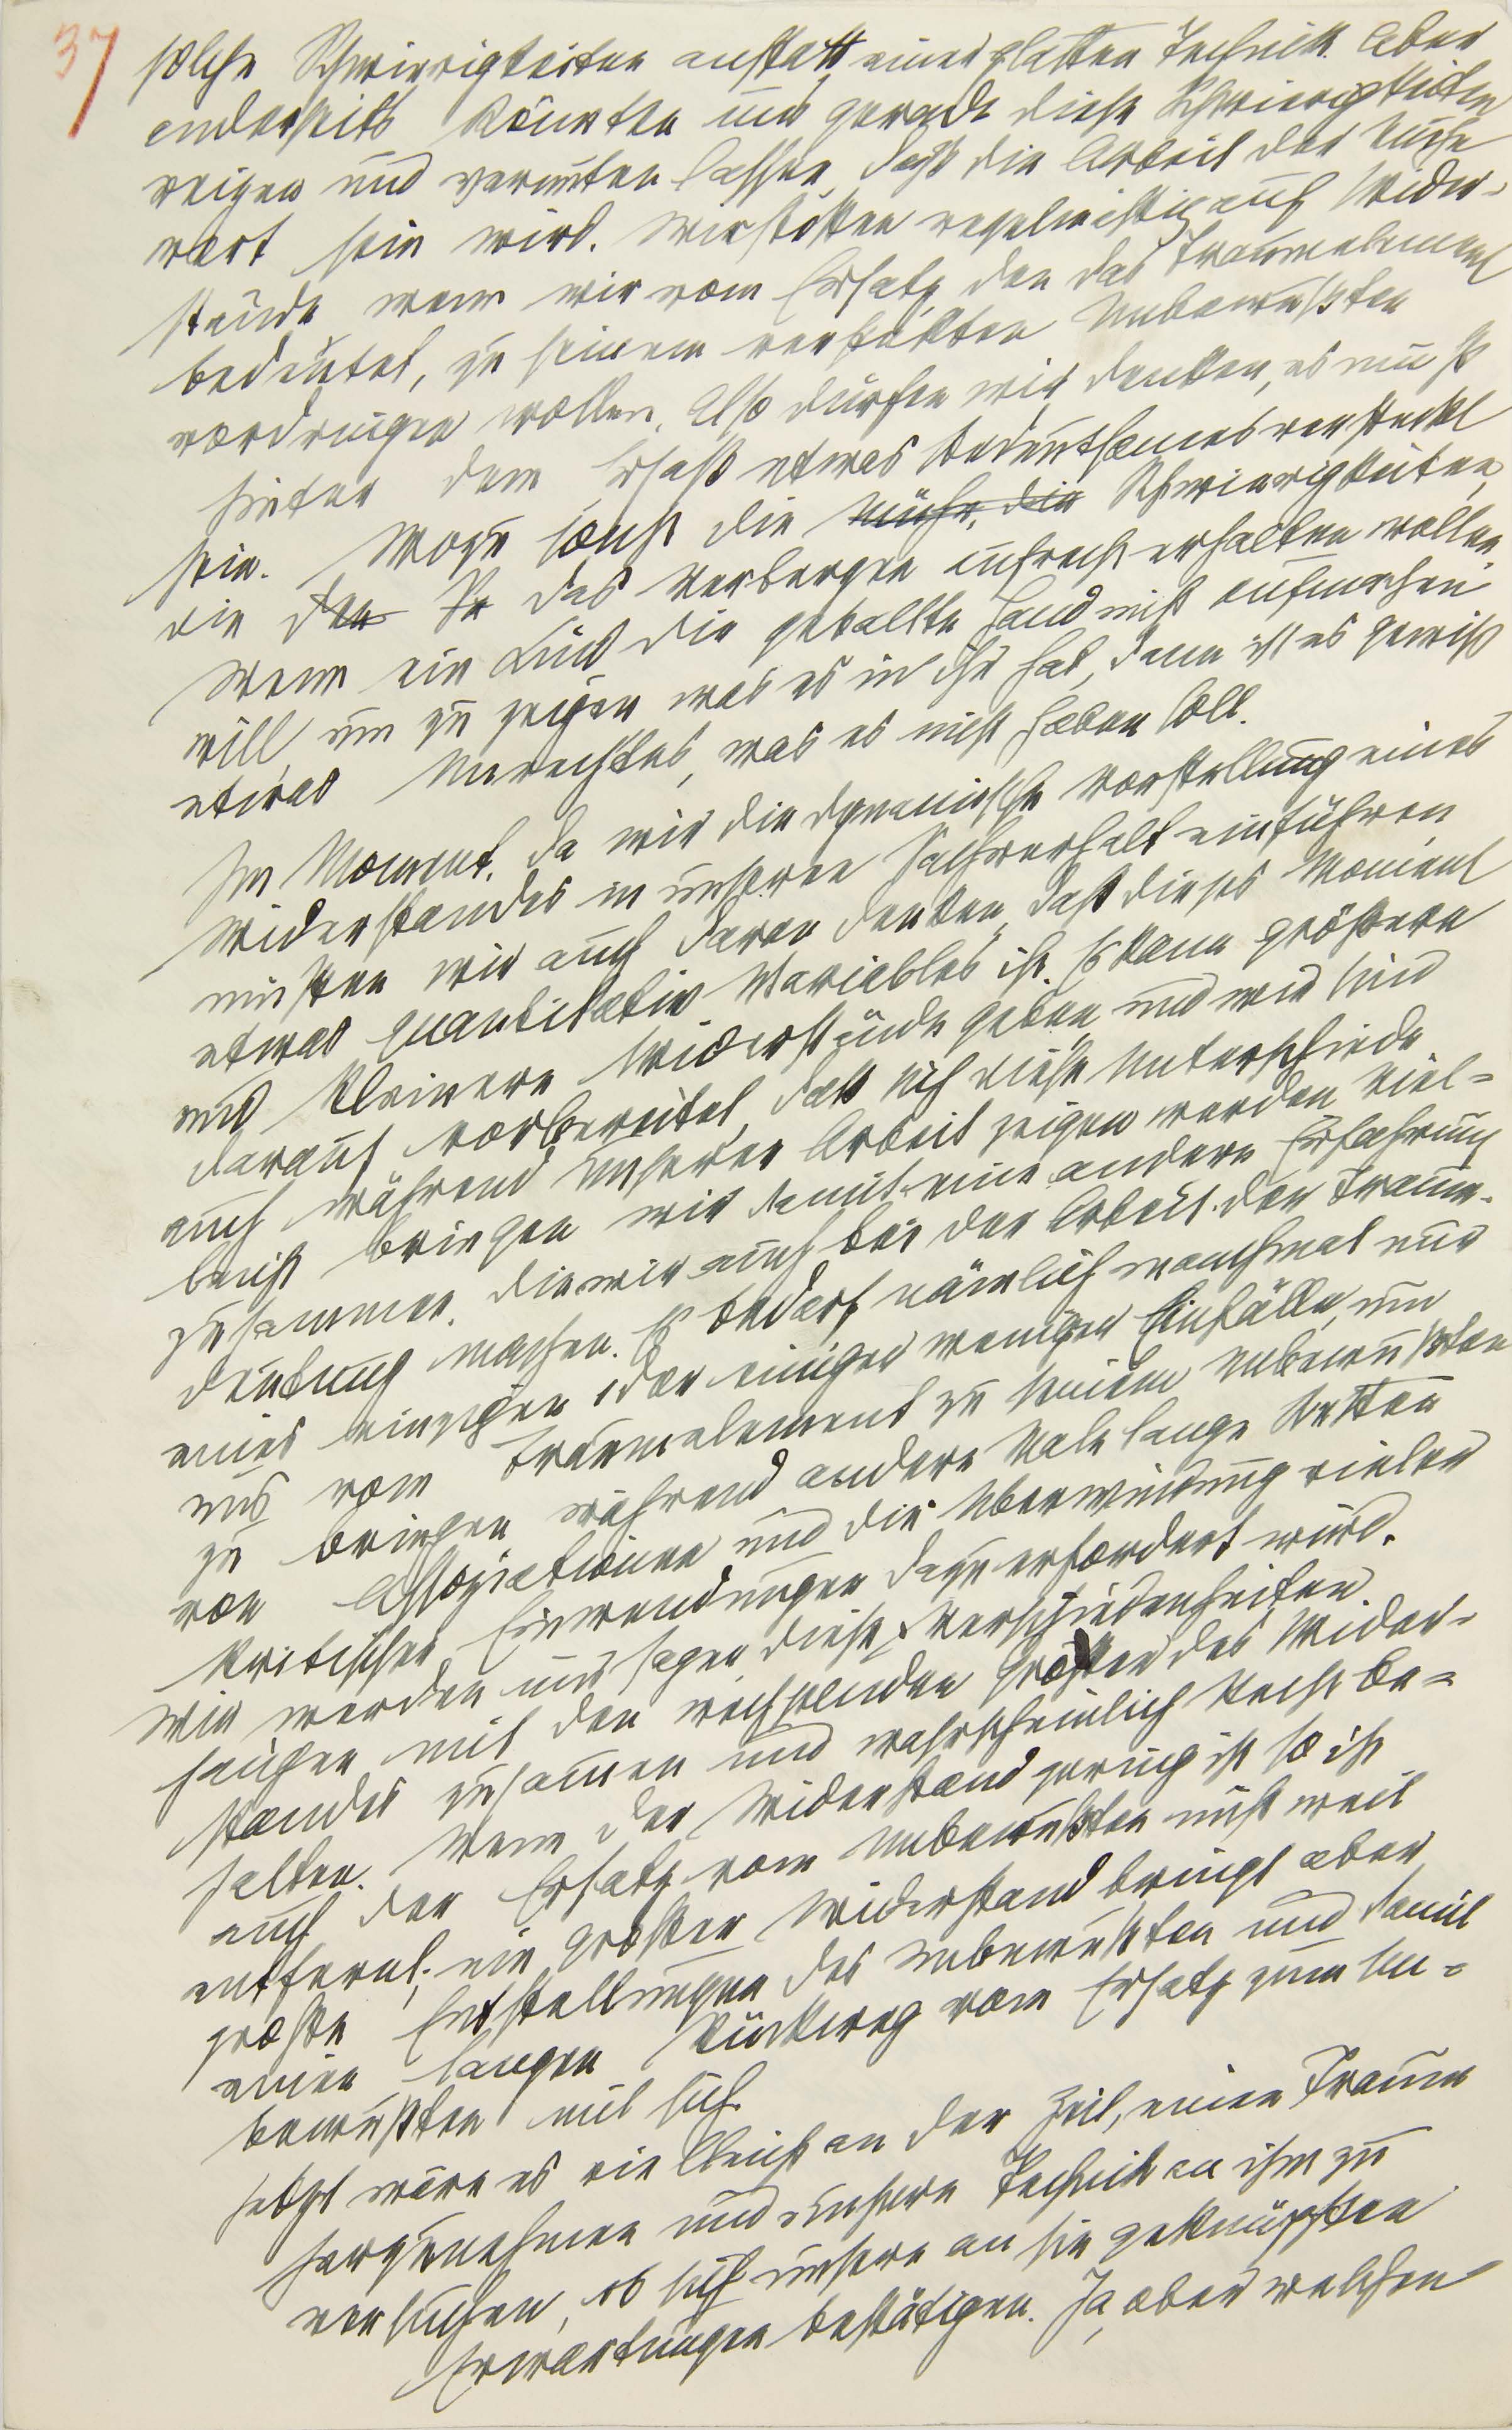 37
solche Schwierigkeiten anstatt einer glatten Technik. Aber
anderseits könnten uns gerade diese Schwierigkeiten
reizen und vermuten lassen, daß die Arbeit der Mühe
wert sein wird. Wir stoßen regelmäßig auf Wider-
stände wenn wir vom Ersatz den das Traumelement
bedeutet, zu seinem versteckten Unbewußten
vordringen wollen. Also dürfen wir denken, es muß
hinter dem Ersatz etwas Bedeutsames versteckt
sein. Wozu sonst die Mühe, die Schwierigkeiten,
die den das Verbergen aufrecht erhalten wollen
Wenn ein Kind die geballte Hand nicht aufmachen
will, um zu zeigen was es in ihr hat, dann ist es gewiß
etwas Unrechtes, was es nicht haben soll.
Im Moment, da wir die dynamische Vorstellung eines
Widerstandes in unseren Sachverhalt einführen
müssen wir auch daran denken, daß dieses Moment
etwas quantitativ Variables ist. Es kann größere
und kleinere Widerstände geben und wir sind
darauf vorbereitet, daß sich diese Unterschiede
auch während unserer Arbeit zeigen werden. Viel-
leicht bringen wir damit eine andere Erfahrung
zusammen, die wir auch bei der Arbeit der Traum-
deutung machen. Es bedarf nämlich manchmal nur
eines einzigen oder einiger weniger Einfälle, um
uns vom Traumelement zu seinem Unbewußten
zu bringen, während andere Male lange Ketten
von Assoziationen und die Überwindung vieler
kritischer Einwendungen dazu erfordert wird.
Wir werden uns sagen, diese Verschiedenheiten
hängen mit den wechselnden Größen des Wider-
standes zusamen und wahrscheinlich Recht be-
halten. Wenn der Widerstand gering ist so ist
auch der Ersatz vom Unbewußten nicht weit
entfernt; ein großer Widerstand bringt aber
große Entstellungen des Unbewußten und damit
einen langen Rückweg vom Ersatz zum Un-
bewußten mit sich.
Jetzt wäre es vielleicht an der Zeit, einen Traum
herzunehmen und unsere Technik an ihm zu
versuchen, ob sich unsere an sie geknüpften
Erwartungen bestätigen. Ja, aber welchen